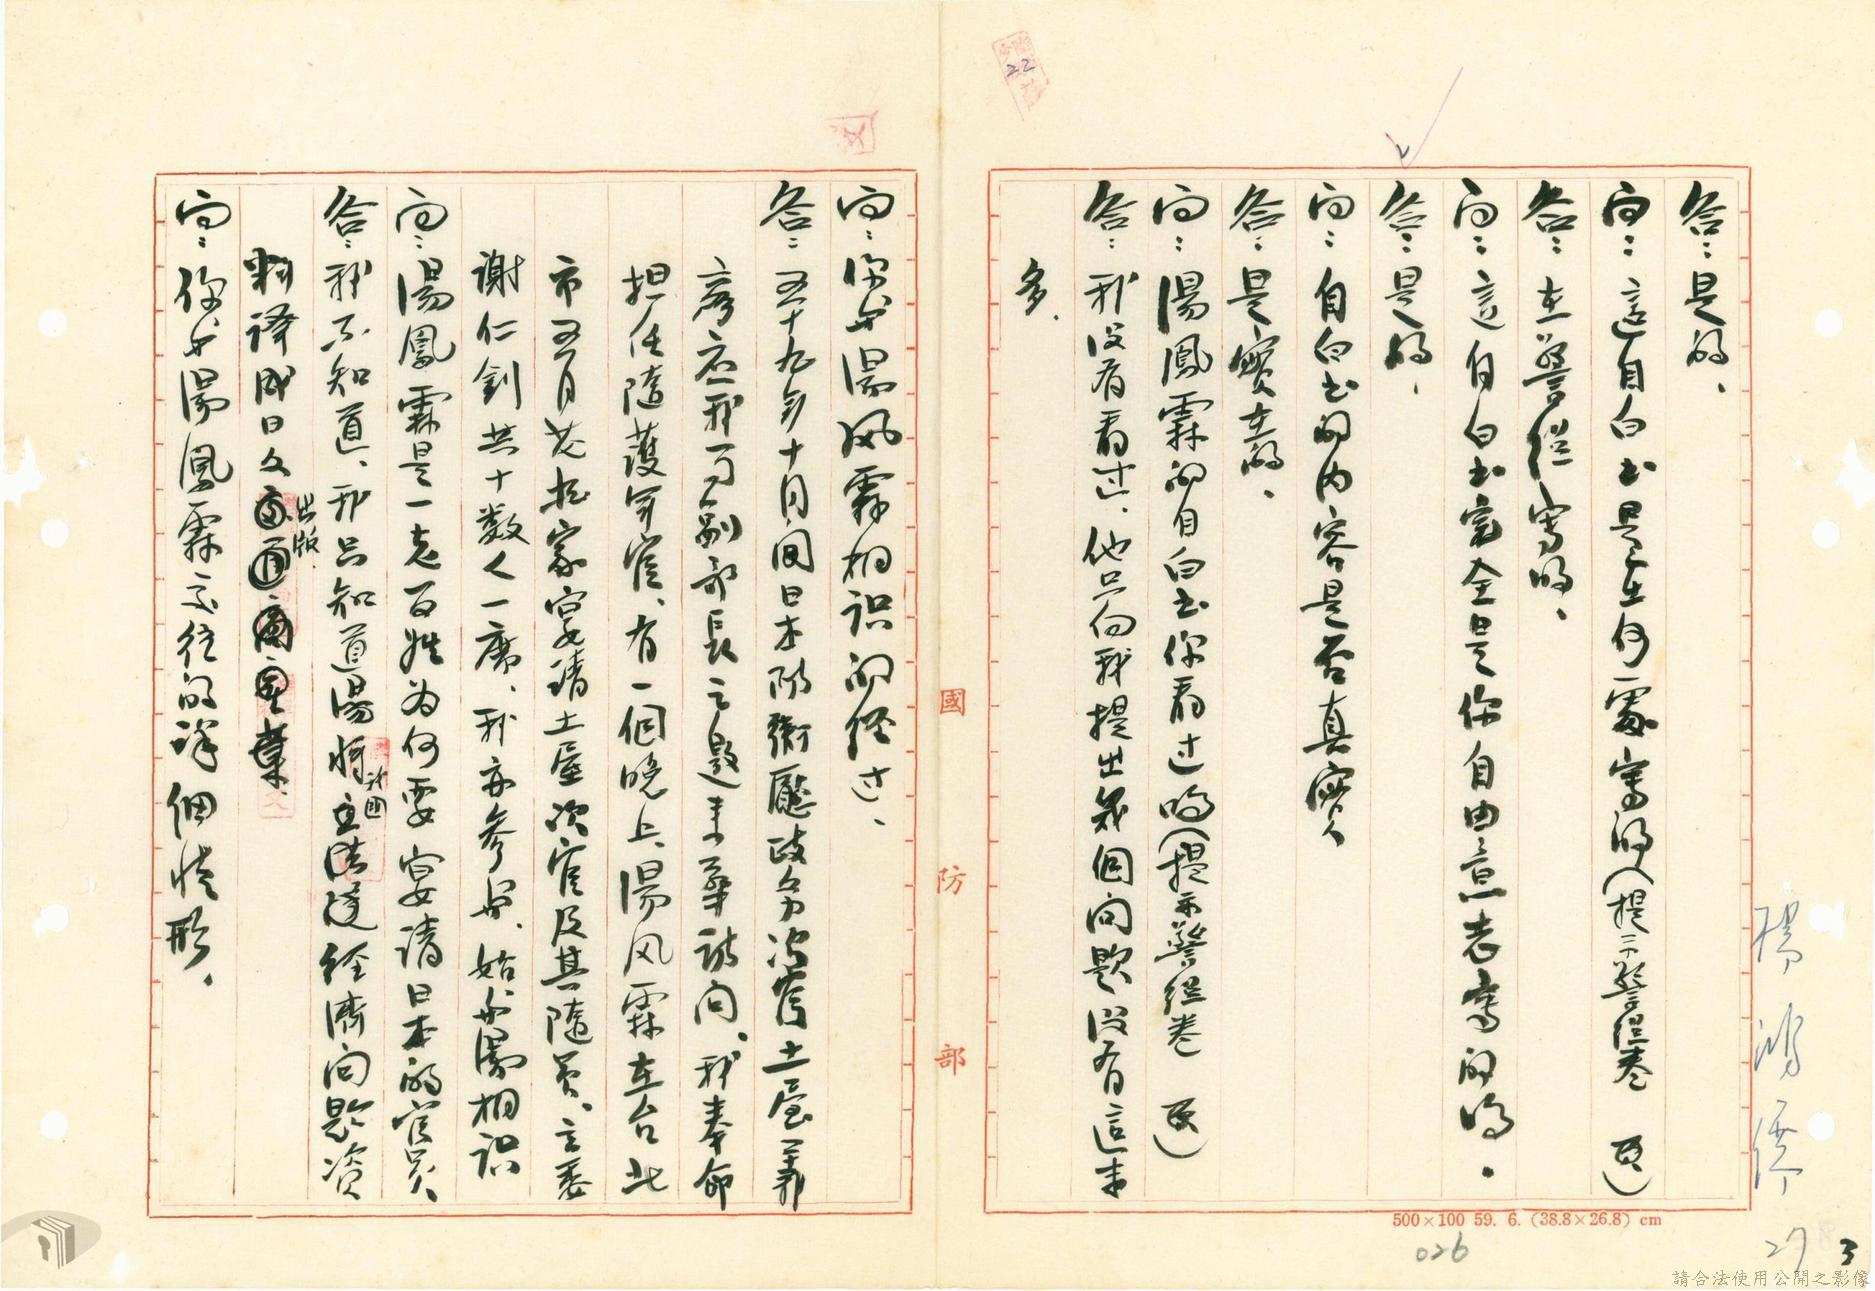 答：是的、
問：這自白書是在何處寫的（提示警總卷　頁）
答：在警總寫的、
問：這自白書完全是你自由意志寫的嗎、
答：是的、
問：自白書的內容是否真實
答：是實在的、
問：湯鳳霖的自白書你看过嗎（提示警總卷　頁）
答：我没有看过、他只向我提出幾個问題没有這末
多、
問：你与湯风霖相识的経过、
答：五十九年十月间日本防衛廳政务次官土屋義
彦应我一副部長之邀来華訪问、我奉命
担任隨護官、有一個晚上、湯风霖在台北
市五月花招宴请土屋次官及其隨員、立委
謝仁釗共十数人一席、我亦参与、始与湯相识
問：湯鳳霖是一老百姓为何要宴请日本的官员、
答：我不知道、我只知道湯將我國立法院经濟问题资
料译成日文出版、
問：你与湯鳳霖交往的详细情形、
國防部
500×100 59. 6. (38.8×26.8) cm
026
27
3
22
楊鴻儒
請合法使用公開之影像